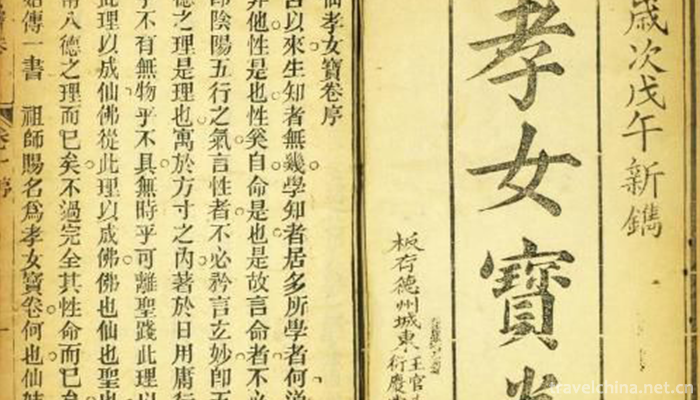 歲次戊午新鐫
孝女寶卷
板存德州城東王官
衍慶
仙孝女寶卷序
古以來生知者無幾學知者居多所學者何消
非他性是也性奚自命是也是故言命者不必
即陰陽五行之氣言性者不必矜言玄妙卽五
德之理是理也寓於方寸之內著於日用庸行
乎不有無物乎不具無時乎可離聖踐此理以
此理以成仙佛從此理以成佛佛也仙也聖也
南八德之理而已矣不過完全其性命而已矣
始傳一書 祖師賜名為孝女寶卷何也仙妹
travelchina.net.cn